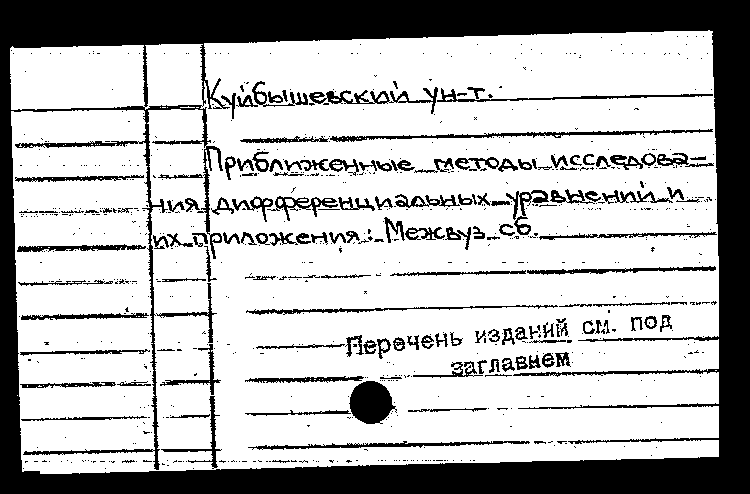 Куйбышевский ун-т.
Приближенные методы исследова-
ния дифференциальных уравнений и
их приложения: Межвуз. сб.
Перечень изданий см. под
заглавием